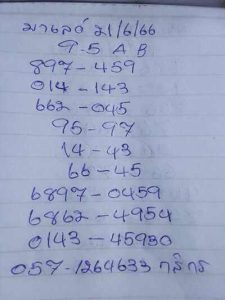 มาเลย์ 21/6/66
9-5 A B
897-459
014-143
662-045
95-97
14-43
66-45
6897-0459
6862-4954
0143-45930
057-1264633